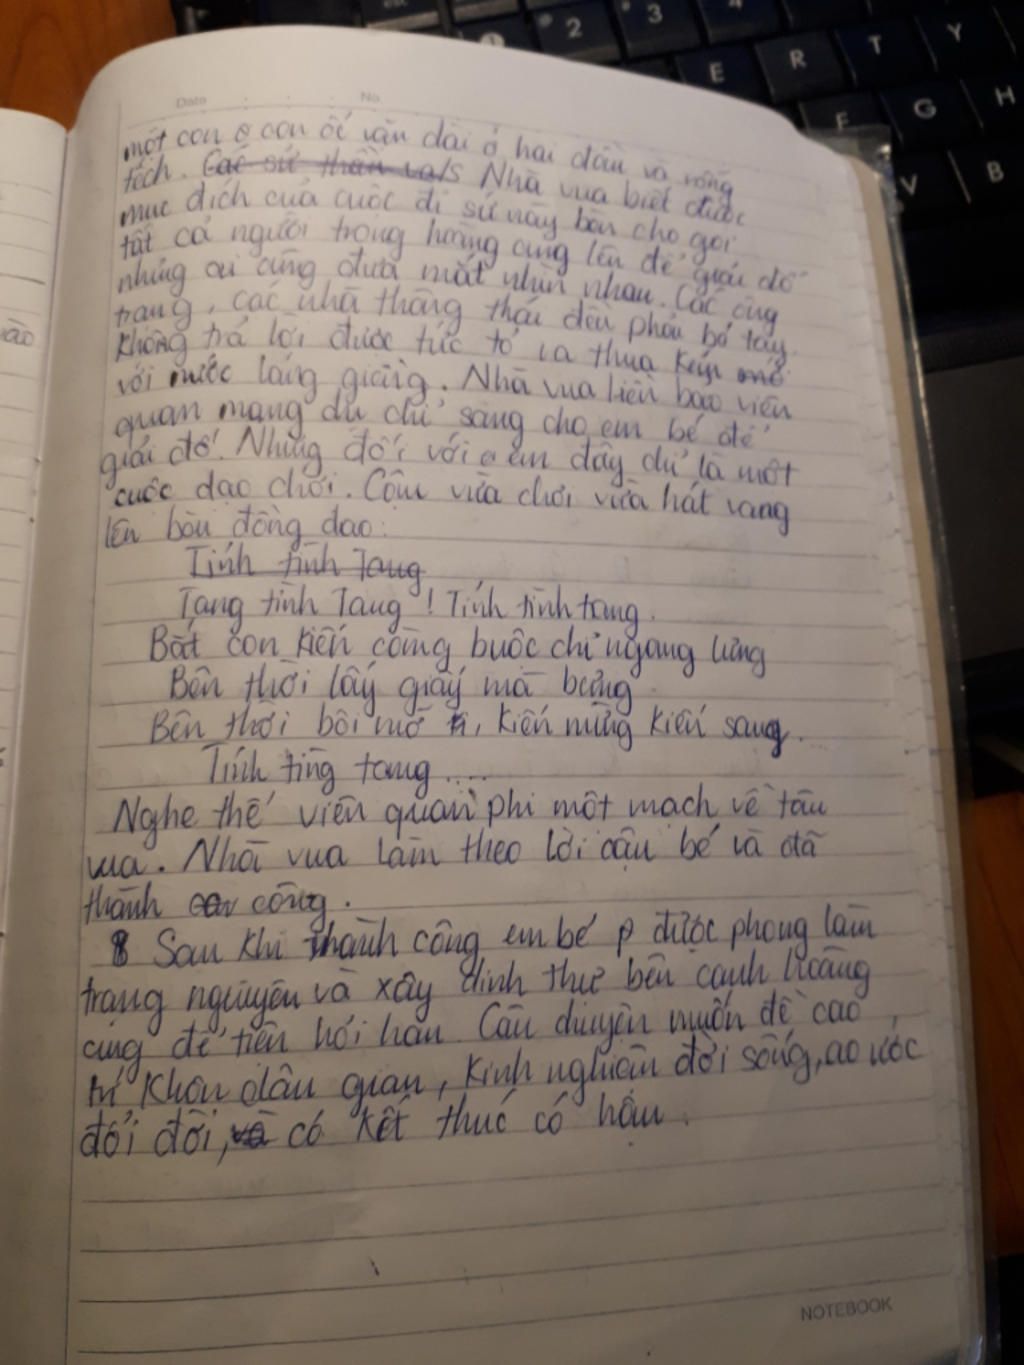 Date No
một con ốc con ốc vặn dài ở hai đầu và rỗng
tếch. Các sứ thần vals Nhà vua biết được
mục đích của cuộc đi sứ này bèn cho gọi
tất cả người trong hoàng cung lên để giải đố
nhưng ai cũng đưa mắt nhìn nhau. Các ông
trạng, các nhà thông thái đều phải bó tay.
Không trả lời được tức tỏ ra thua kém
với nước láng giềng. Nhà vua liền bảo viên
quan mang dụ chỉ sang cho em bé để
giải đố. Nhưng đối với em đây chỉ là một
cuộc dạo chơi. Cậu vừa chơi vừa hát vang
lên bài đồng dao:
Tính tình Tang
Tang tình Tang! Tính tình tang.
Bắt con kiến càng buộc chỉ ngang lưng
Bên thời lấy giấy mà bưng
Bên thời bôi mỡ, kiến mừng kiến sang.
Tính ting tang.....
Nghe thế viên quan phi một mạch về tâu
vua. Nhà vua làm theo lời cậu bé và đã
thành công.
8 Sau khi thành công em bé p được phong làm
trạng nguyên và xây dinh thự bên cạnh hoàng
cung để tiện hỏi han. Câu chuyện muốn đề cao
trí khôn dân gian, kinh nghiệm đời sống, ao ước
đổi đời, và có kết thúc có hậu.
NOTEBOOK
1 2 3 4
E R T Y
F G H
V B